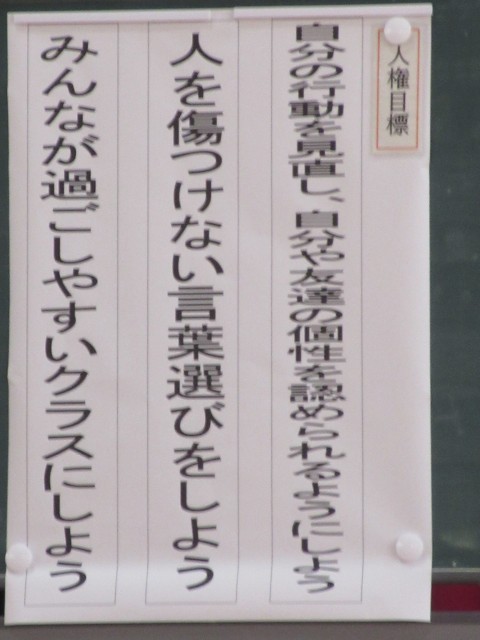 人権目標
自分の行動を見直し、自分や友達の個性を認められるようにしよう
人を傷つけない言葉選びをしよう
みんなが過ごしやすいクラスにしよう